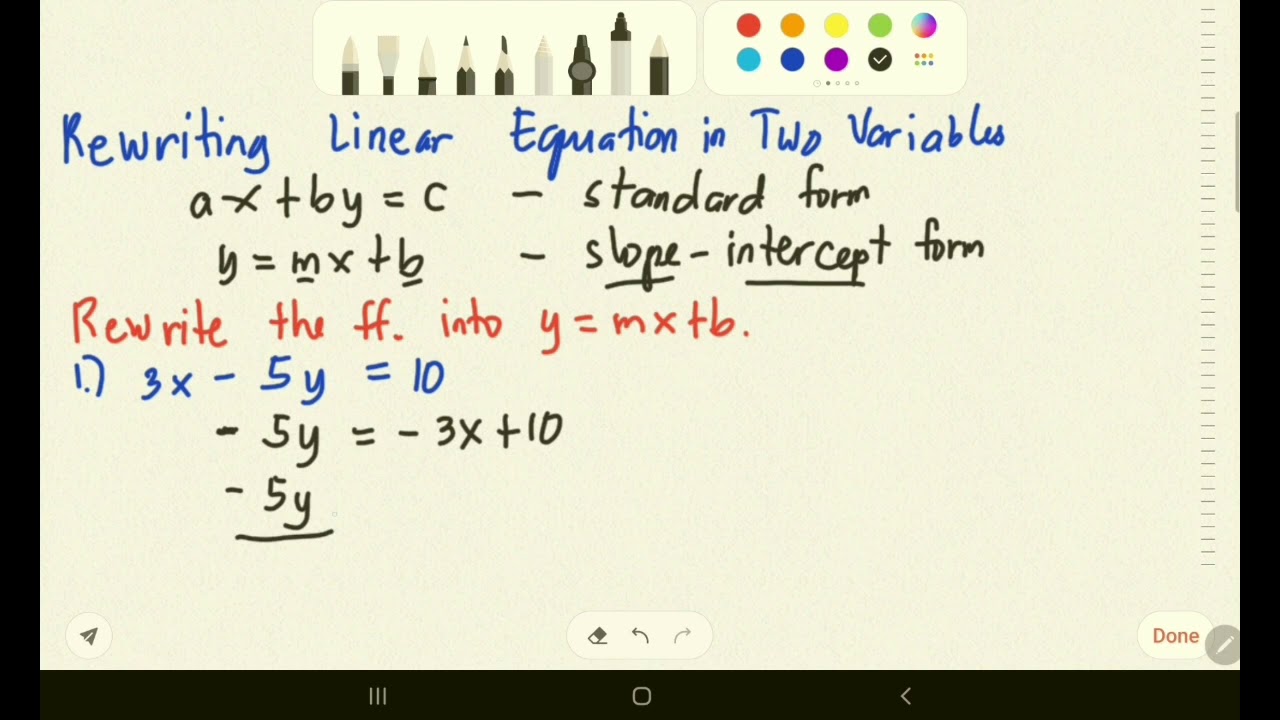 Rewriting Linear Equation in Two Variables
ax + by = c - standard form
y = mx + b - slope - intercept form
Rewrite the ff. into y = mx + b.
1.) 3x - 5y = 10
- 5y = - 3x + 10
- 5y
Done